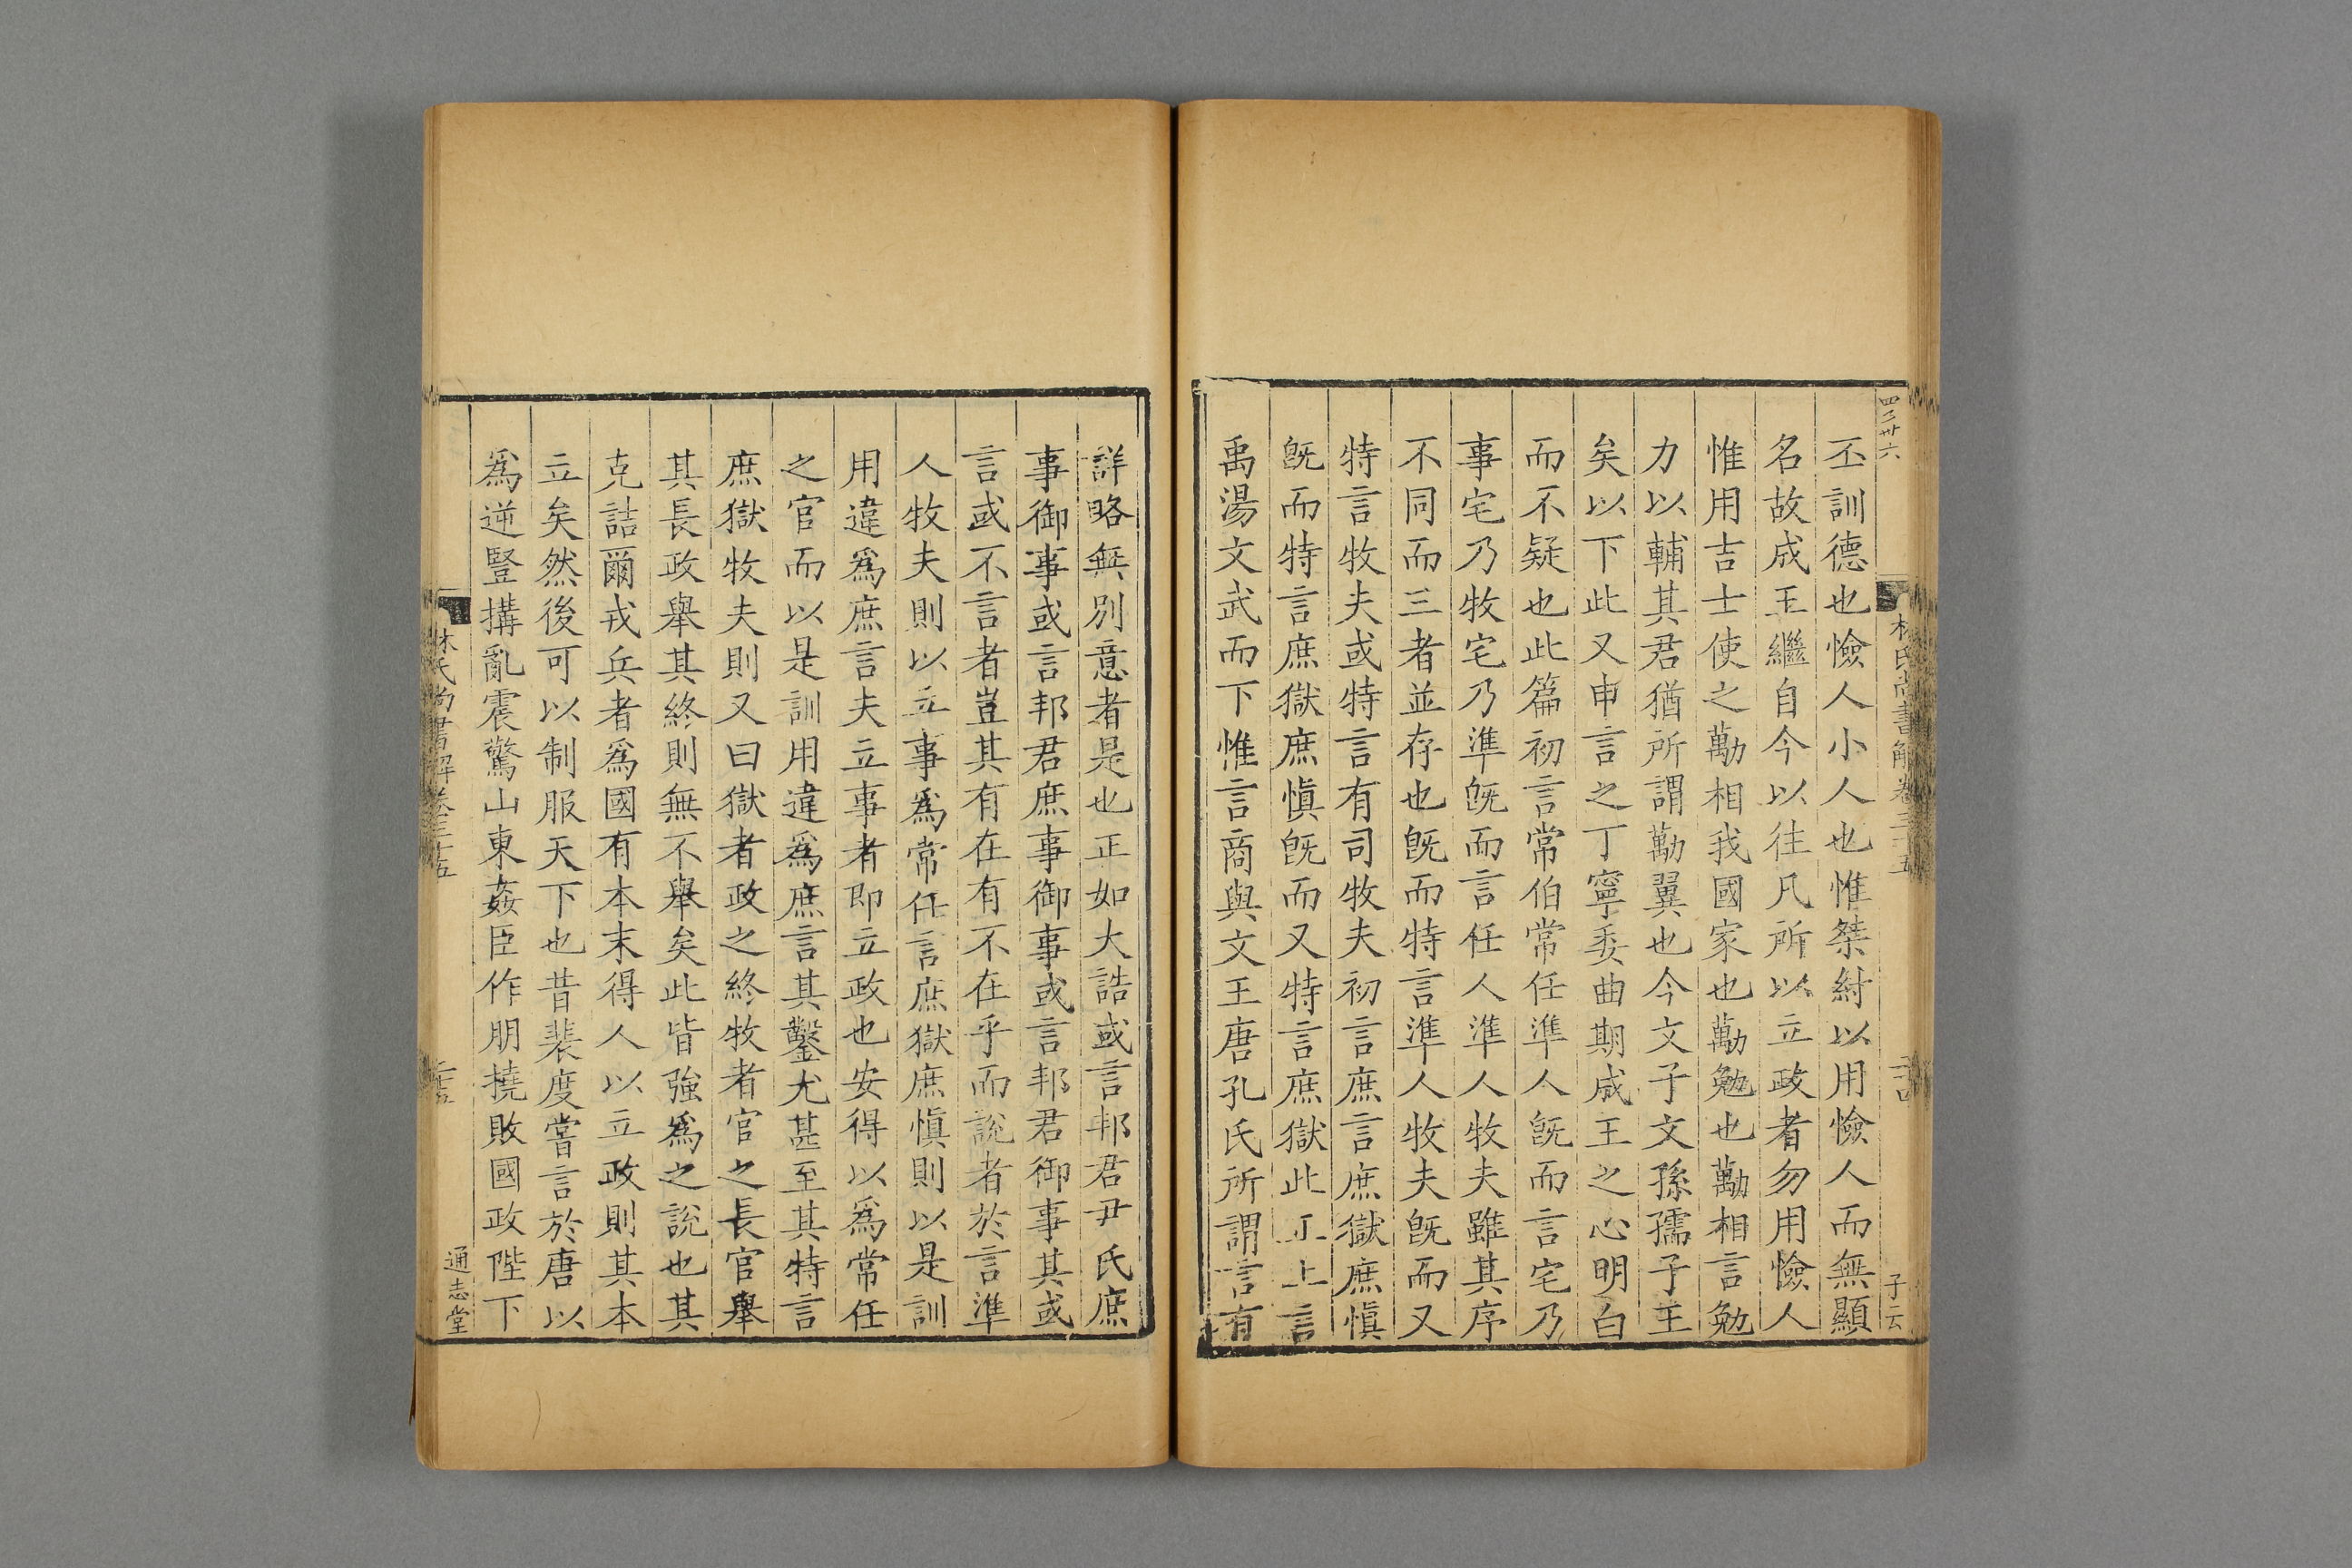 丕訓德也憸人小人也惟桀紂以用憸人而無顯
名故成王繼自今以往凡所以立政者勿用憸人
惟用吉士使之勱相我國家也勱勉也勱相言勉
力以輔其君猶所謂勱翼也今文子文孫孺子王
矣以下此又申言之丁寧委曲期成王之心明白
而不疑也此篇初言常伯常任準人旣而言宅乃
事宅乃牧宅乃準旣而言任人準人牧夫雖其序
不同而三者並存也旣而特言準人牧夫旣而又
特言牧夫或特言有司牧夫初言庶言庶獄庶愼
旣而特言庶獄庶愼旣而又特言庶獄此亦上言
禹湯文武而下惟言商與文王唐孔氏所謂言有
林氏尚書解卷三十五
二十四
子云
詳略無別意者是也正如大誥或言邦君尹氏庶
事御事或言邦君庶事御事或言邦君御事其或
言或不言者豈其有在有不在乎而說者於言準
人牧夫則以立事爲常任言庶獄庶愼則以是訓
用違爲庶言夫立事者即立政也安得以爲常任
之官而以是訓用違爲庶言其鑿尤甚至其特言
庶獄牧夫則又曰獄者政之終牧者官之長官舉
其長政舉其終則無不舉矣此皆強爲之說也其
克詰爾戎兵者爲國有本末得人以立政則其本
立矣然後可以制服天下也昔裴度嘗言於唐以
爲逆豎搆亂震驚山東姦臣作朋撓敗國政陛下
林氏尚書解卷三十五
二十五
通志堂